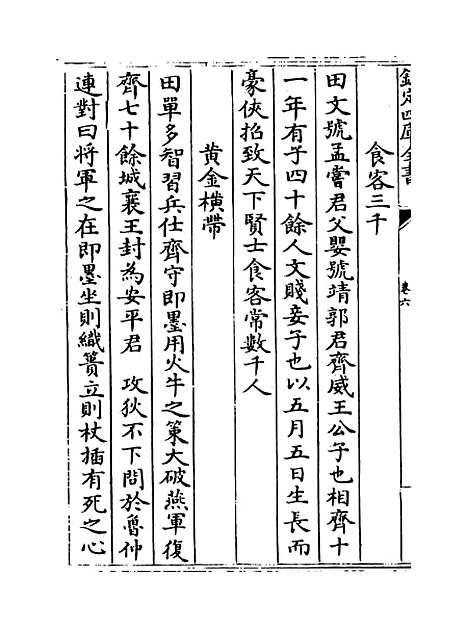 欽定四庫全書
卷六
食客三千
田文號孟嘗君父嬰號靖郭君齊威王公子也相齊十
一年有子四十餘人文賤妾子也以五月五日生長而
豪俠招致天下賢士食客常數千人
黄金橫帶
田單多智習兵仕齊守即墨用火牛之策大破燕軍復
齊七十餘城襄王封為安平君 攻狄不下問於魯仲
連對曰将軍之在即墨坐則織蕢立則杖插有死之心